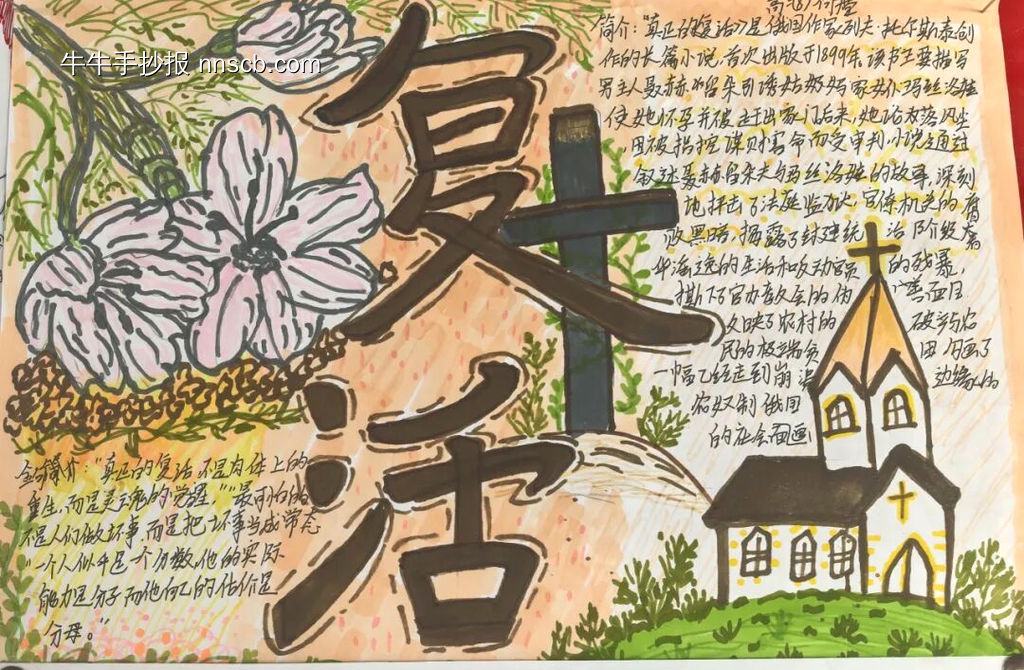 牛牛手抄报 nnscb.com
复活
简介:"真正的《复活》是俄国作家列夫·托尔斯泰创
作的长篇小说,首次出版于1899年,该书主要描写
男主人聂赫留朵夫引诱姑妈家女仆玛丝洛娃
使她怀孕并被赶出家门后来,她沦为落风尘
,因被指控谋财害命而受审判,小说通过
叙述聂赫留朵夫与玛丝洛娃的故事,深刻
地抨击了法庭监狱官僚机关的腐
败黑暗,揭露了封建统治阶级大
华海逸的生活和反动官员的残暴,
撕下了官办教会的伪善面目
反映了农村的破产与农
民的极端贫困勾画了
一幅已经走到崩溃边缘的
农奴制俄国
的社会画面
金句摘抄:"真正的复活,不是肉体上的
重生,而是灵魂的觉醒。""最可怕的
不是人们做坏事,而是把坏事当成常态
"一个人似乎是一个分数,他的实际
能力是分子而他自己的估价是
分母。"